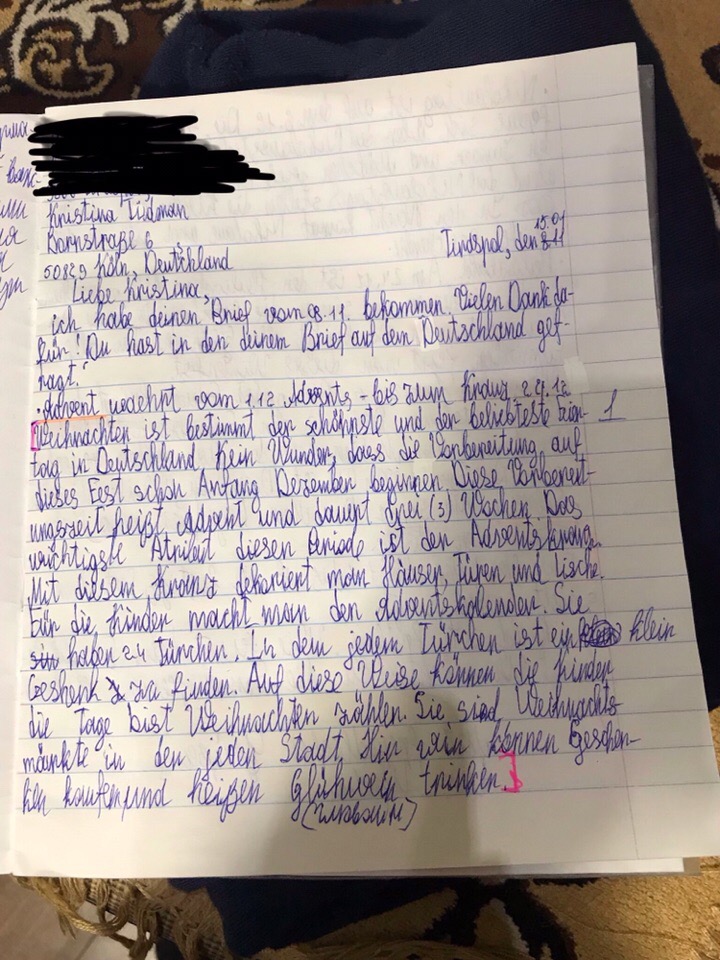 Kristina Tidman
Kornstraße 6
50829 Köln, Deutschland
Tiraspol, den 8.11
15.01
Liebe Kristina,
ich habe deinen Brief vom 08.11. bekommen. Vielen Dank da-
für! Du hast in den deinem Brief auf dem Deutschland gef-
ragt.
Advent waehrt vom 1.12 Advents- bis zum Kranz 24.12
[Weihnachten ist bestimmt der schönste und der beliebteste
tag in Deutschland. Kein Wunder, dass die Vorbereitung auf
dieses Fest schon Anfang Dezember beginnen. Diese Vorbereit-
ungszeit heißt Advent und dauert drei (3) Wochen. Das
wichtigste Atribut diesen Periode ist den Adventskranz.
Mit diesem Kranz dekoriert man Häuser, Türen und Tische.
Für die Kinder macht man den Adventskalender. Sie
haben 24 Türchen. In dem jedem Türchen ist ein klein
Geshenk zu finden. Auf diese Weise können die Kinder
die Tage bist Weihnachten zählen. Sie sind Weihnachts-
märkte in der jeden Stadt. Hir können Geschen-
ken kaufen und heißen Glühwein trinken.]
(глювайн)
1